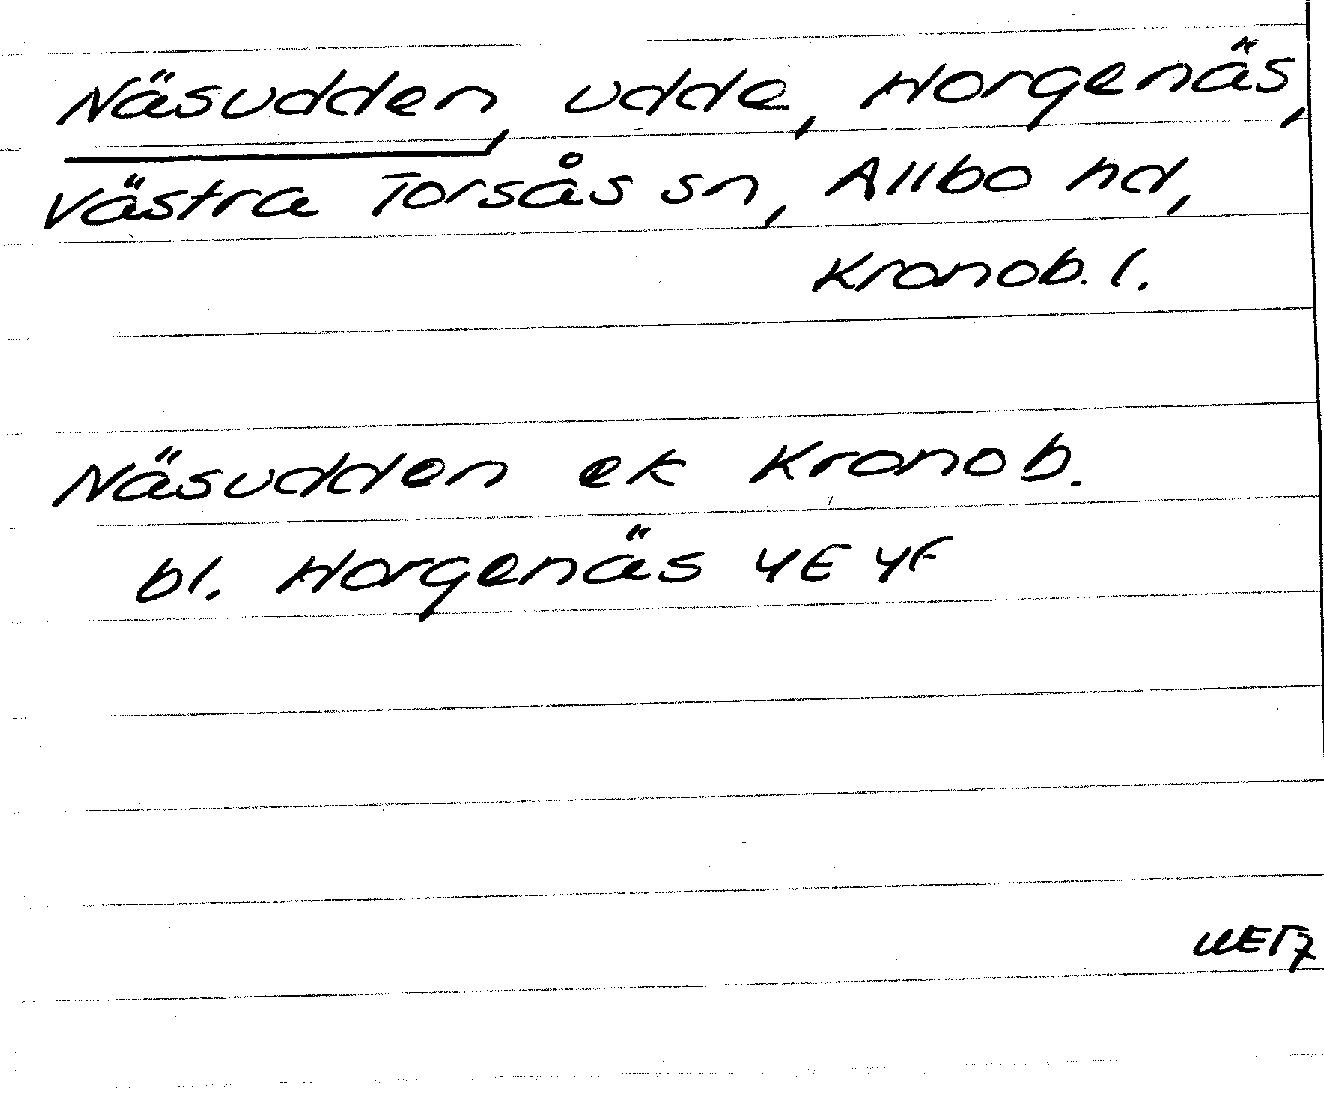 Näsudden, udde, Horgenäs,
Västra Torsås sn, Allbo hd,
Kronob. l.
Näsudden ek Kronob.
bl. Horgenäs 4E 4F